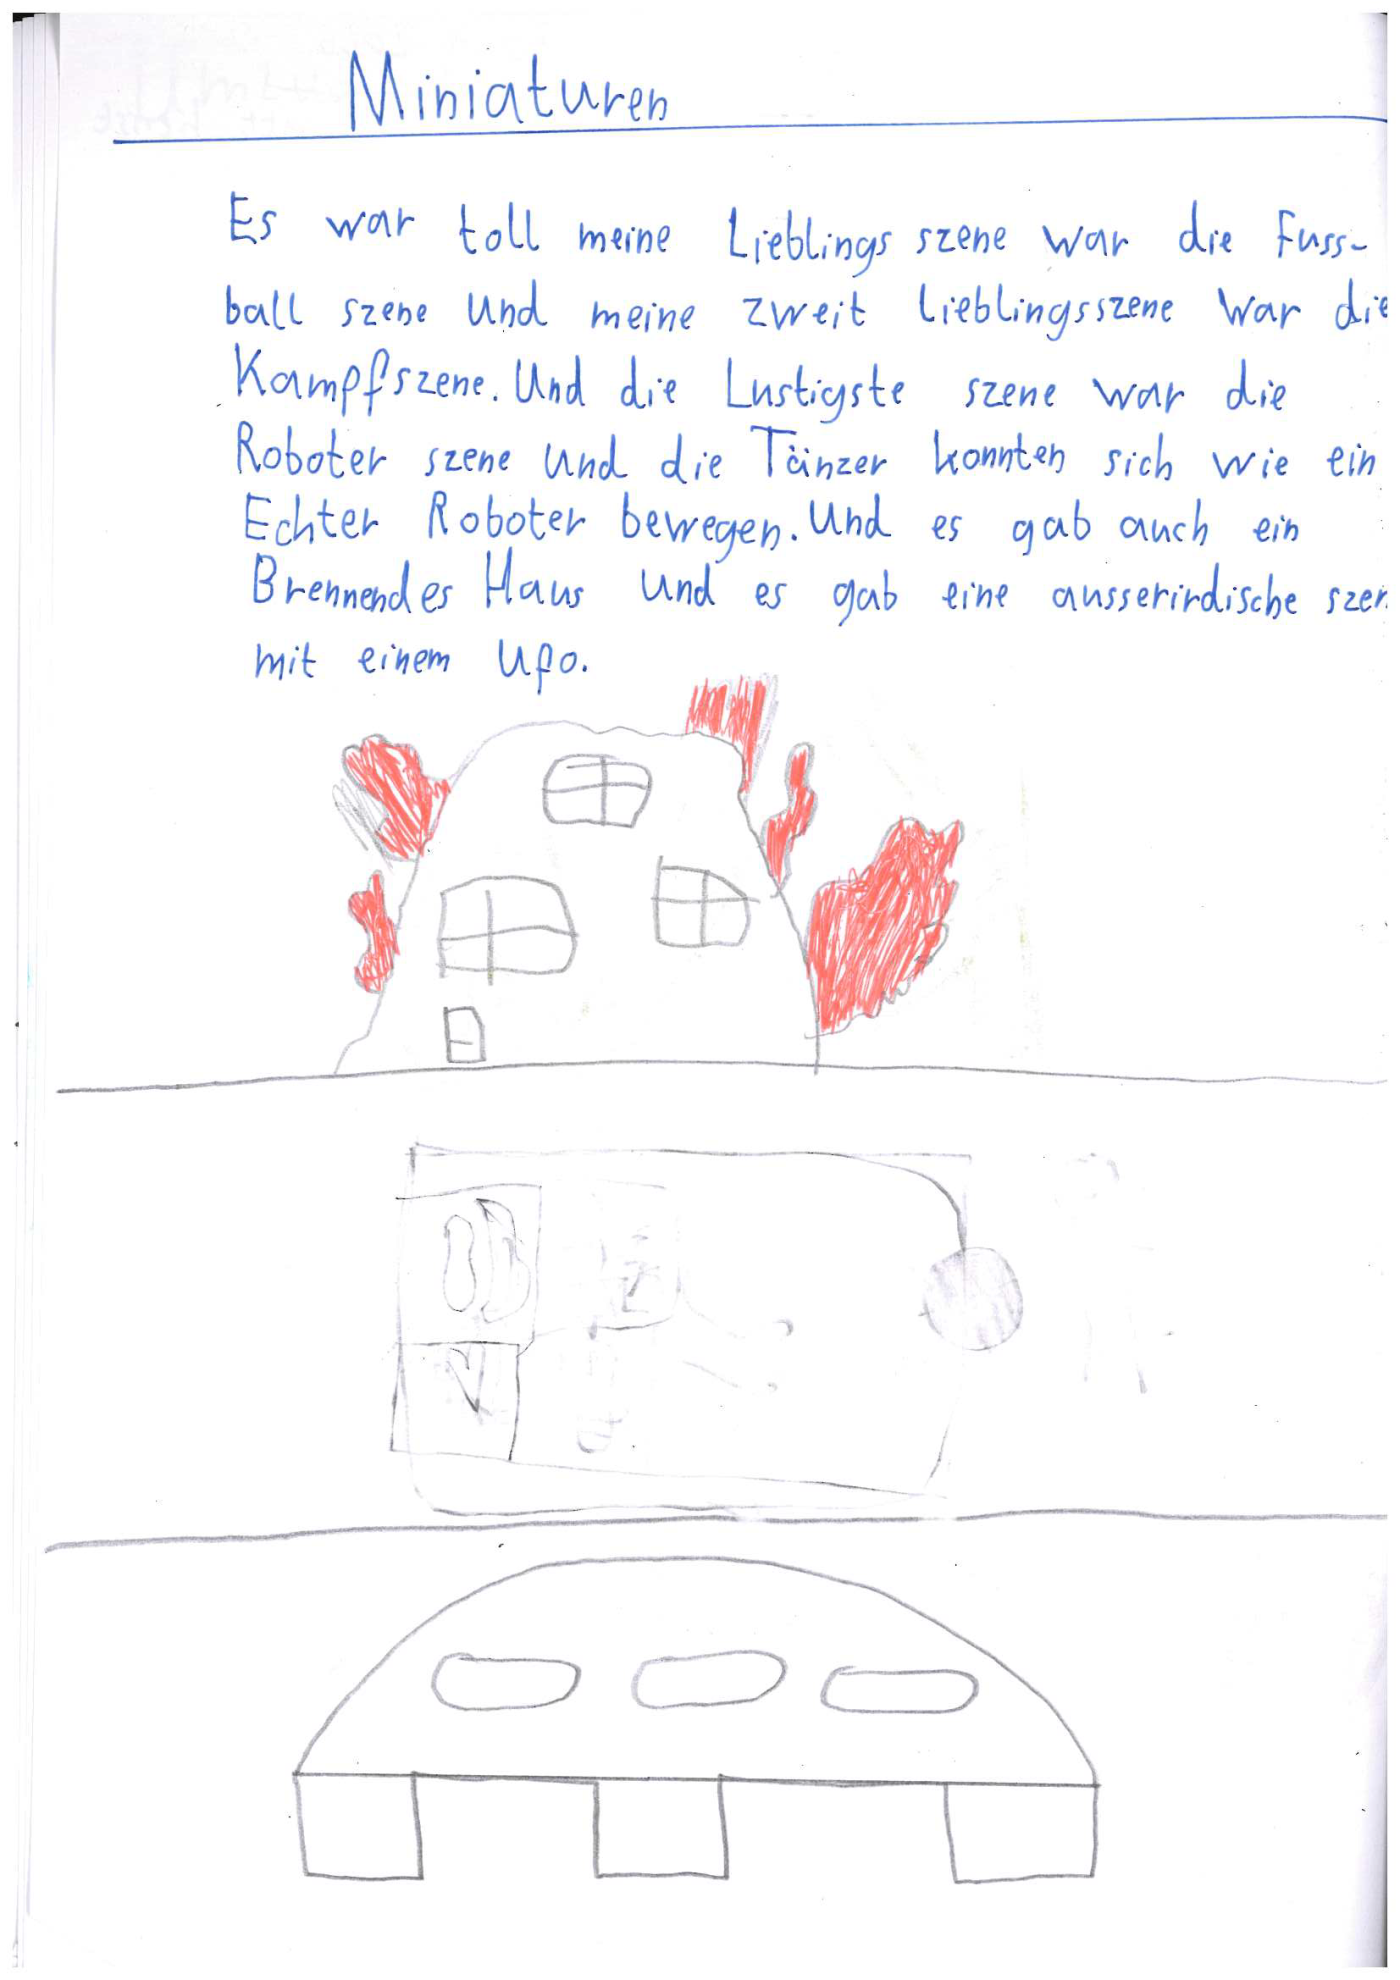 Miniaturen
Es war toll meine Lieblings szene war die Fuss-
ball szene und meine zweit lieblingsszene war die
Kampfszene. Und die Lustigste szene war die
Roboter szene und die Tänzer konnten sich wie ein
Echter Roboter bewegen. Und es gab auch ein
Brennendes Haus und es gab eine ausserirdische
mit einem Ufo.